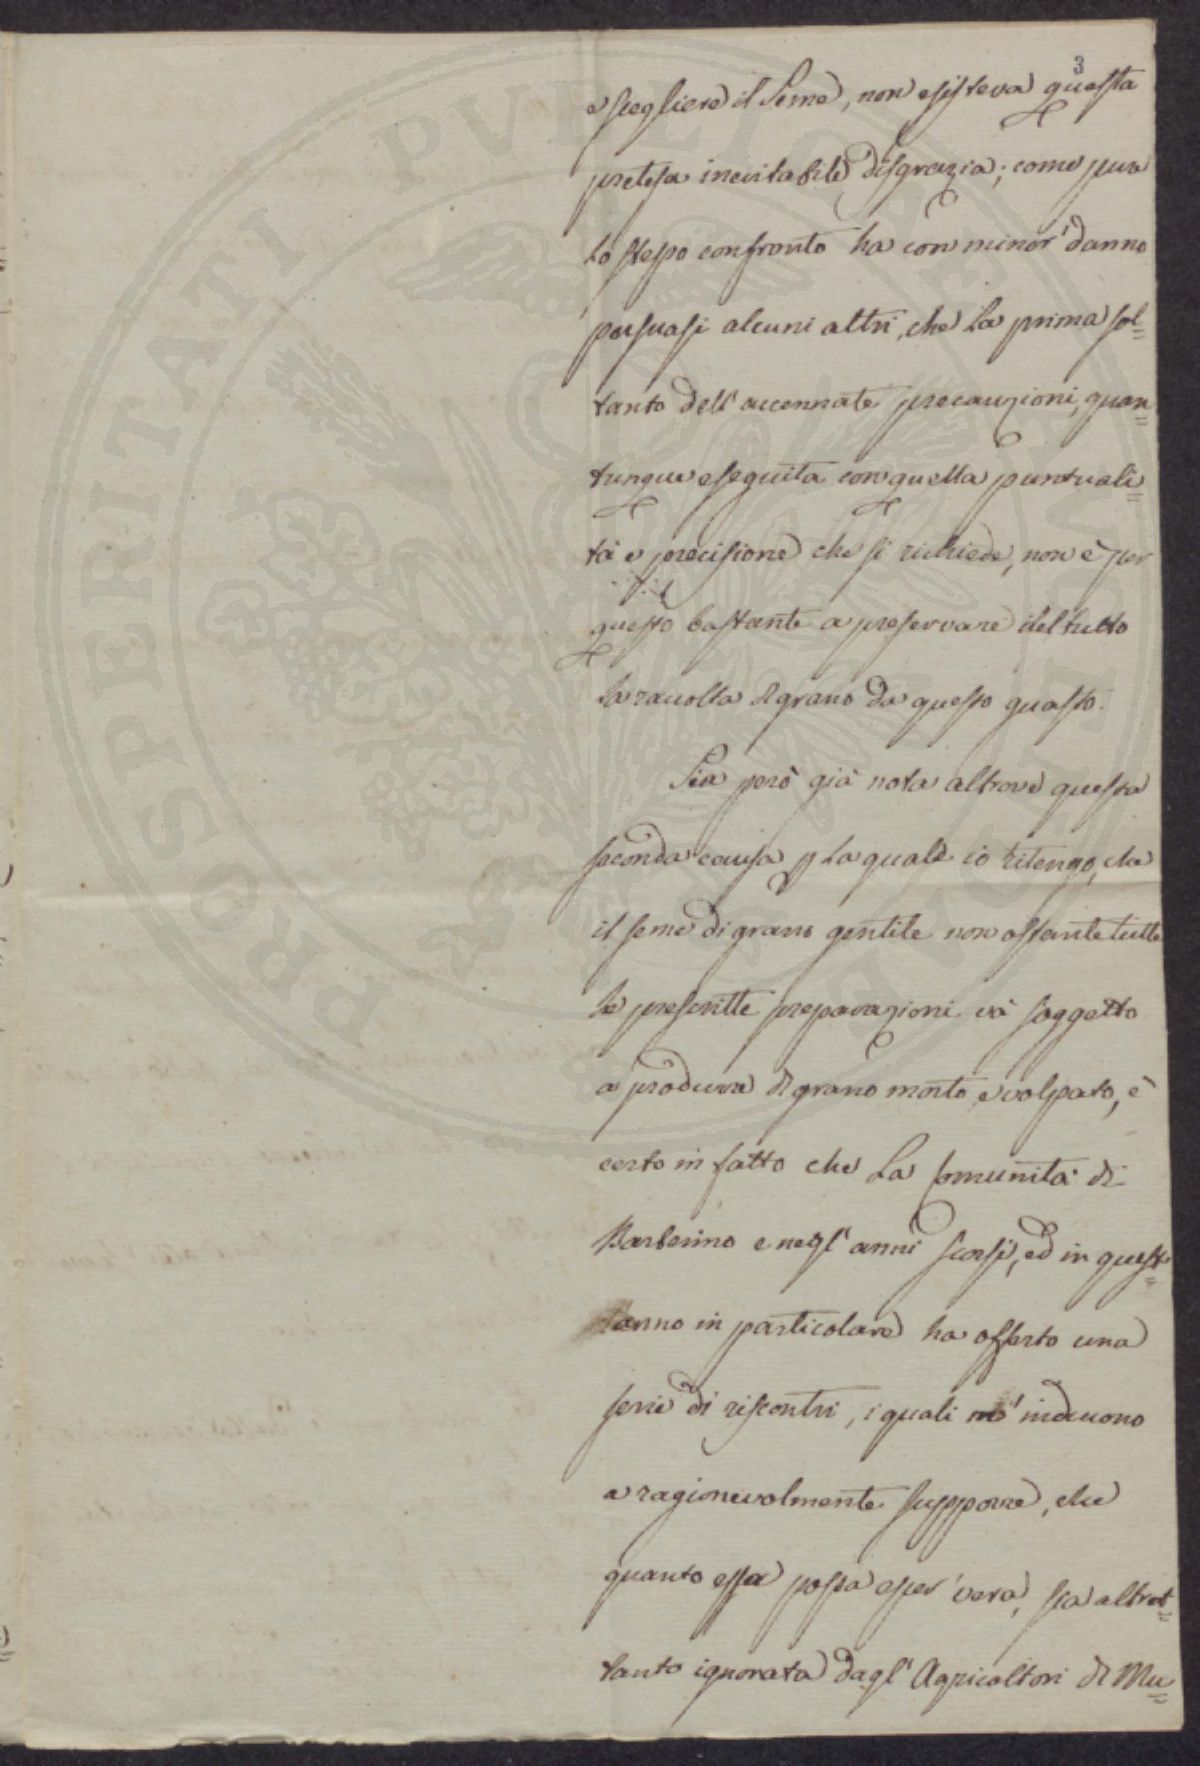 3
e scegliere il Seme, non esisteva questa
pretesa inevitabile disgrazia; come pure
lo stesso confronto ha con minor' danno
persuasi alcuni altri, che la prima sol=
tanto dell' accennate precauzioni, quan=
tunque eseguita con quella puntuali=
tà e precisione che si richiede, non è per
questo bastante a preservare del tutto
la raccolta di grano da questo guasto.
Sia però già nota altrove questa
seconda causa p la quale io ritengo, che
il seme di grano gentile non ostante tutte
le prescritte preparazioni và soggetto
a produrre di grano morto e volpato, è
certo in fatto che la Comunità di
Barberino e negl' anni scorsi, ed in quest=
anno in particolare ha offerto una
serie di riscontri, i quali m' inducono
a ragionevolmente supporre, che
quanto essa possa esser' vera, sia altret=
tanto ignorata dagl' Agricoltori di Mu=
PROSPERITATI PVBLICAE AVGENDAE